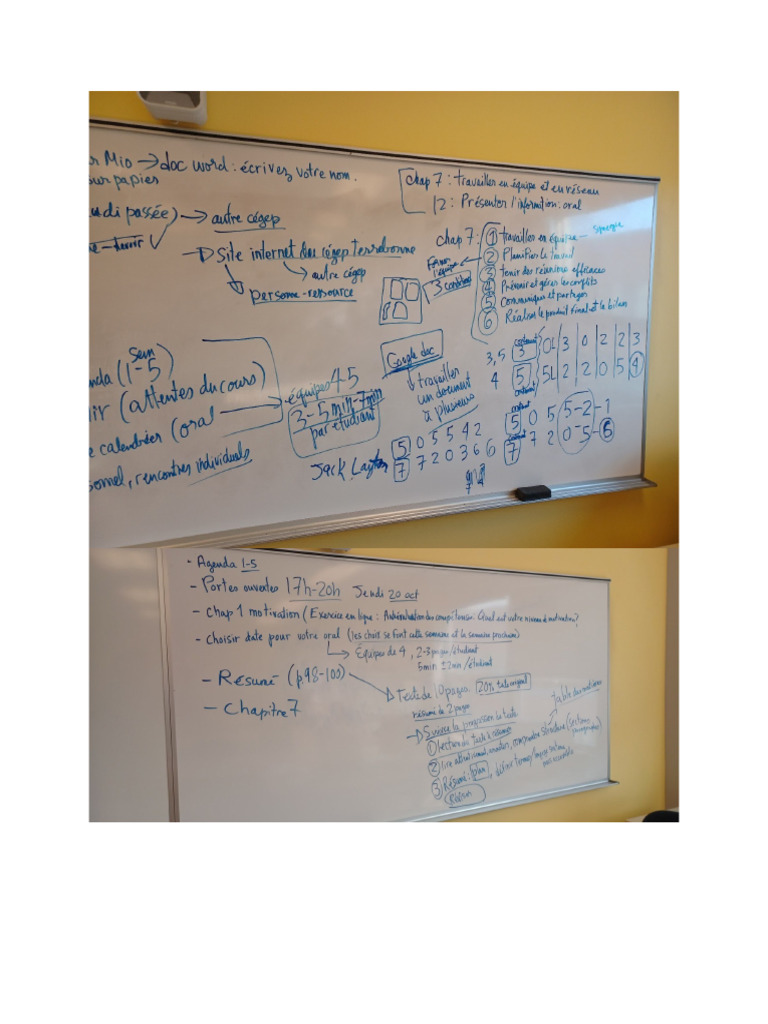 Mio → doc word : écrivez votre nom.
sur papies
di passée) → autre cégep
→ Site internet du cégep terrebonne
→ autre cégep
→ personne-ressource
Chap 7 : travailler en équipe et en réseau
12 : Présenter l'information : oral
Chap 7 : ① travailler en équipe — Synergie
② Planifier le travail
③ tenir des réunions efficaces
④ Prévenir et gérer les conflits
⑤ Communiquer et partager
⑥ Réaliser le produit final et le bilan
3
Sem
(1-5)
(attentes du cours)
calendrier (oral
rencontres individuels
équipes 4 5
3-5 min-7 min
par étudiant
Google doc
↓ travailler
un document
à plusieurs
3,5 3 OL 3 0 2 2 3
4 5 5L 2 2 0 5 4
5 0 5 5-2-1
7 7 2 0-5-6
Jack Layton
5 0 3 5 4 2
7 7 2 0 3 6 6
- Agenda 1-5
- Portes ouvertes 17h-20h Jeudi 20 oct
- Chap 1 motivation (Exercice en ligne : Quel est votre niveau de motivation?
- Choisir date pour votre oral (les choix se font cette semaine et la semaine prochaine)
→ Équipes de 4, 2-3 pages/étudiant
5min ±2min /étudiant
- Résumé (p.98-100)
→ Texte de 10 pages. 20% texte original
résumé de 2 pages
→ Suivre la progression du texte
table des matières
① lecture du texte
② lire structure (sections, paragraphes)
③ Résumé : plan,
- Chapitre 7